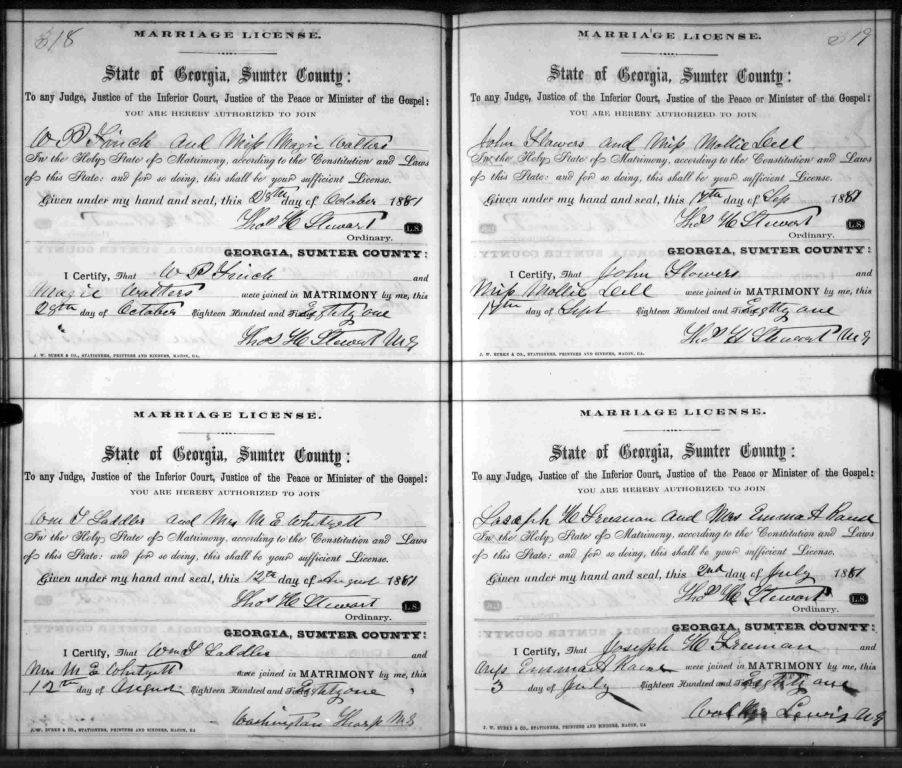 318
MARRIAGE LICENSE.
State of Georgia, Sumter County:
To any Judge, Justice of the Inferior Court, Justice of the Peace or Minister of the Gospel:
YOU ARE HEREBY AUTHORIZED TO JOIN
W P Finch and Miss Magie Watters
In the Holy State of Matrimony, according to the Constitution and Laws
of this State: and for so doing, this shall be your sufficient License.
Given under my hand and seal, this 28th day of October 1881
Thos H Stewart L.S.
Ordinary.
GEORGIA, SUMTER COUNTY:
I Certify, That W P Finch and
Magie Watters were joined in MATRIMONY by me, this
28th day of October Eighteen Hundred and Eighty one
Thos H Stewart M G
J. W. BURKE & CO., STATIONERS, PRINTERS AND BINDERS, MACON, GA.
MARRIAGE LICENSE.
State of Georgia, Sumter County:
To any Judge, Justice of the Inferior Court, Justice of the Peace or Minister of the Gospel:
YOU ARE HEREBY AUTHORIZED TO JOIN
Wm T Saddler and Mrs M E
In the Holy State of Matrimony, according to the Constitution and Laws
of this State: and for so doing, this shall be your sufficient License.
Given under my hand and seal, this 12th day of August 1881
Thos H Stewart L.S.
Ordinary.
GEORGIA, SUMTER COUNTY:
I Certify, That Wm T Saddler and
Mrs M E were joined in MATRIMONY by me, this
12th day of August Eighteen Hundred and Eighty one
Washington Tharp M G
J. W. BURKE & CO., STATIONERS, PRINTERS AND BINDERS, MACON, GA.
319
MARRIAGE LICENSE.
State of Georgia, Sumter County:
To any Judge, Justice of the Inferior Court, Justice of the Peace or Minister of the Gospel:
YOU ARE HEREBY AUTHORIZED TO JOIN
John Flowers and Miss Mollie Dell
In the Holy State of Matrimony, according to the Constitution and Laws
of this State: and for so doing, this shall be your sufficient License.
Given under my hand and seal, this 17th day of Sep 1881
Thos H Stewart L.S.
Ordinary.
GEORGIA, SUMTER COUNTY:
I Certify, That John Flowers and
Miss Mollie Dell were joined in MATRIMONY by me, this
17th day of Sept Eighteen Hundred and Eighty one
Thos H Stewart M G
J. W. BURKE & CO., STATIONERS, PRINTERS AND BINDERS, MACON, GA.
MARRIAGE LICENSE.
State of Georgia, Sumter County:
To any Judge, Justice of the Inferior Court, Justice of the Peace or Minister of the Gospel:
YOU ARE HEREBY AUTHORIZED TO JOIN
Joseph H Freeman and Mrs Emma A
In the Holy State of Matrimony, according to the Constitution and Laws
of this State: and for so doing, this shall be your sufficient License.
Given under my hand and seal, this 2nd day of July 1881
Thos H Stewart L.S.
Ordinary.
GEORGIA, SUMTER COUNTY:
I Certify, That Joseph H Freeman and
Emma A were joined in MATRIMONY by me, this
3 day of July Eighteen Hundred and Eighty one
Lewis M G
J. W. BURKE & CO., STATIONERS, PRINTERS AND BINDERS, MACON, GA